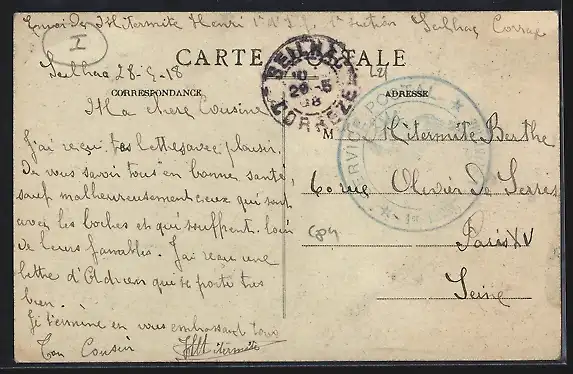 Envoi de Mitermite Henri 1e section Seilhac Corrèze
I
CARTE POSTALE
Seilhac 28-5-18
CORRESPONDANCE
ADRESSE
SEILHAC
28-5
18
CORREZE
SERVICE POSTAL
Ma chère Cousine
J'ai reçu tes lettres avec plaisir.
De vous savoir tous en bonne santé,
sauf malheureusement ceux qui sont
avec les boches et qui souffrent. loin
de leurs familles. J'ai reçu une
lettre d'Adrien qui se porte très
bien.
Je termine en vous embrassant tous
Ton Cousin Mitermite
M
Mitermite Berthe
60 rue Olivier De Serres
Paris XV
Seine